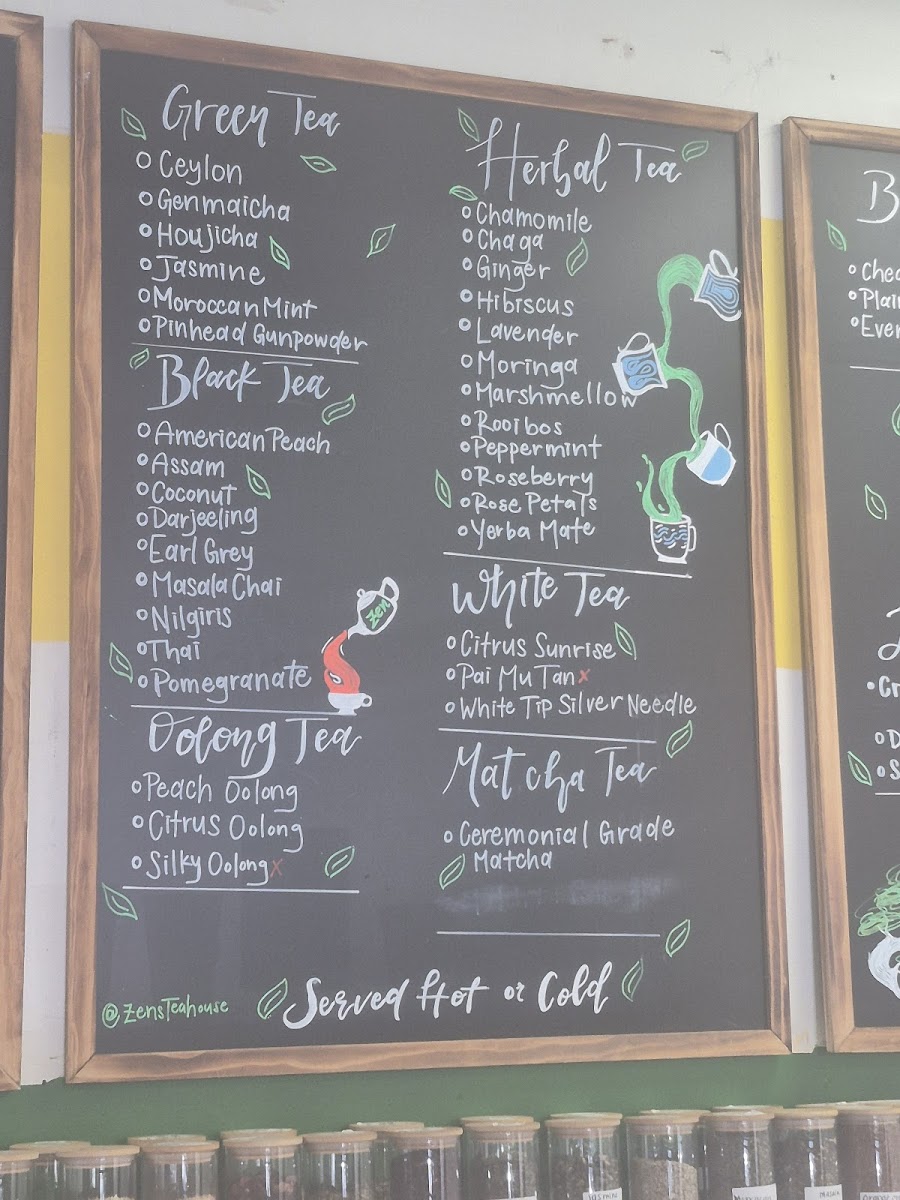 Green Tea
Ceylon
Genmaicha
Houjicha
Jasmine
Moroccan Mint
Pinhead Gunpowder
Black Tea
American Peach
Assam
Coconut
Darjeeling
Earl Grey
Masala Chai
Nilgiris
Thai
Pomegranate
Zen
Oolong Tea
Peach Oolong
Citrus Oolong
Silky Oolong x
@ZensTeahouse
Herbal Tea
Chamomile
Chaga
Ginger
Hibiscus
Lavender
Moringa
Marshmellow
Rooibos
Peppermint
Roseberry
Rose Petals
Yerba Mate
White Tea
Citrus Sunrise
Pai Mu Tan x
White Tip Silver Needle
Matcha Tea
Ceremonial Grade
Matcha
Served Hot or Cold
B
Plai
Ever
D
S